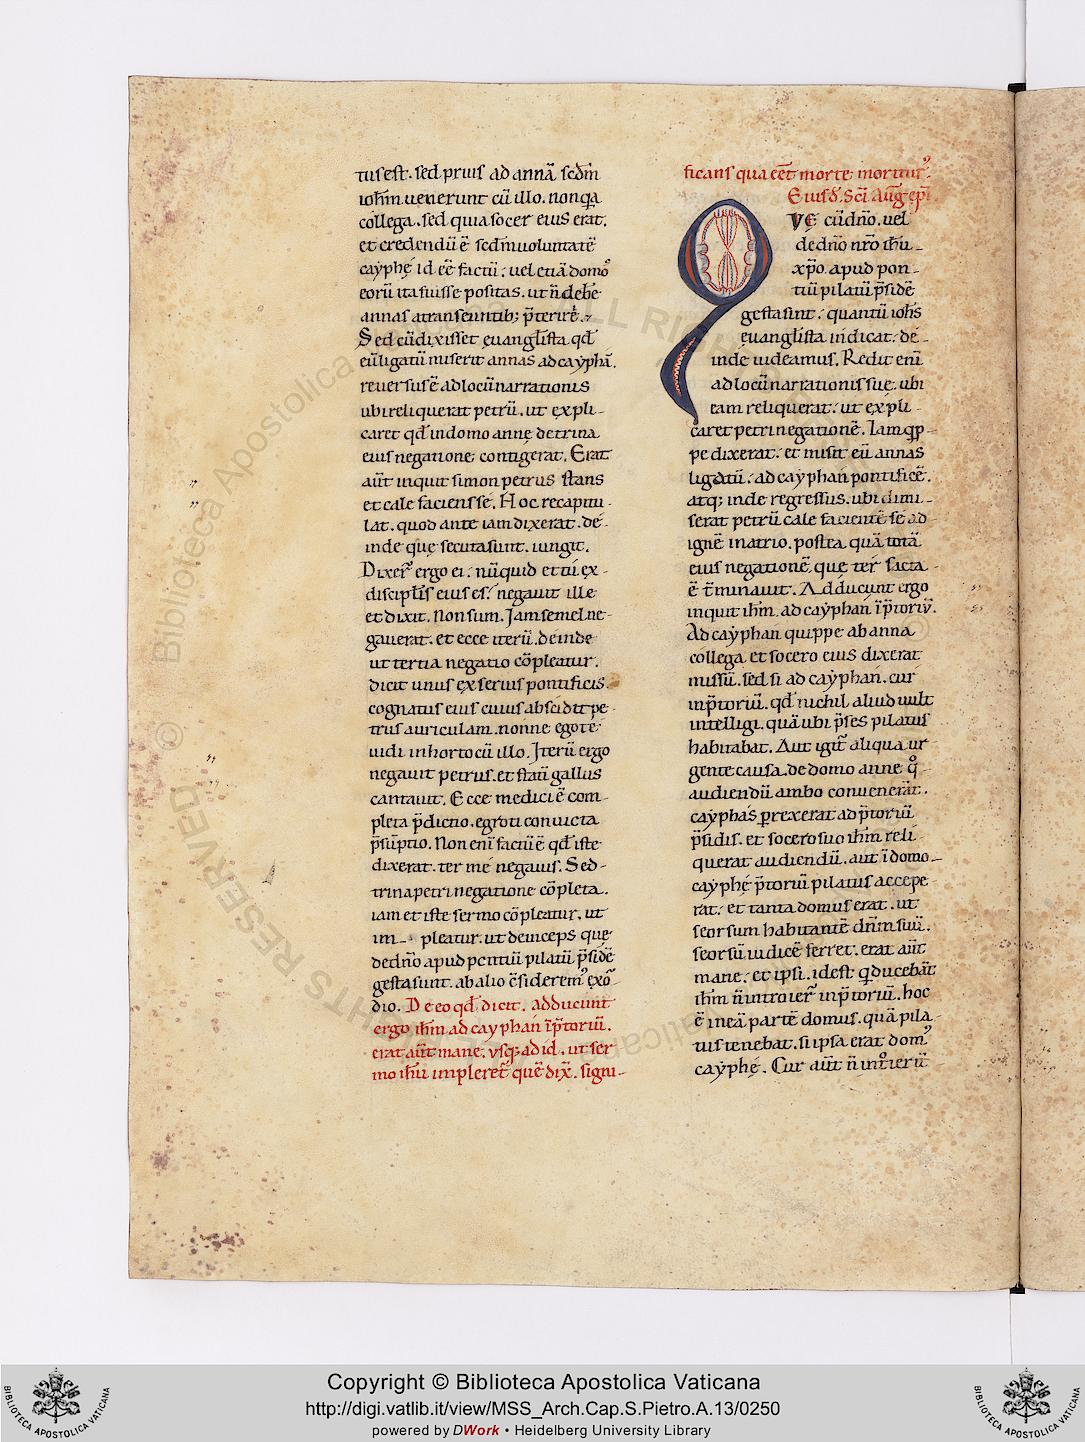 tus est. sed prius ad annã sc̄dm
ioh̃m uenerunt cũ illo. non q̃a
collega. sed quia socer eius erat.
et credendũ ẽ sc̄dm uoluntatẽ
cayphę id eẽ factũ: uel etiã domoˀ
eorũ ita fuisse positas. ut ñ debẽ
annas a transeuntib; p̃terire.
Sed cũ dixisset euangl̃ista qđ
eũ ligatũ miserit annas ad cayphã.
reuersus ẽ ad locũ narrationis
ubi reliquerat petrũ. ut expli-
caret qđ in domo anne de trina
eius negatione contigerat. Erat
aũt inquit simon petrus stans
et calefaciens se. Hoc recapitu-
lat. quod ante iam dixerat. de-
inde que secuta sunt. iungit.
Dixer̃ ergo ei: nũquid et tu ex
discipl̃is eius es: negauit ille
et dixit. Non sum. Iam semel ne-
gauerat. et ecce iterũ. deinde
ut tertia negatio cõpleatur.
dicit unus ex seruis pontificis.
cognatus eius cuius abscidit pe-
trus auriculam. nonne ego te
uidi in horto cũ illo. Iterũ ergo
negauit petrus. et statĩ gallus
cantauit. Ecce medici ẽ com-
pleta p̃dictio. egroti conuicta
p̃sũptio. Non enĩ factũ ẽ qđ iste
dixerat. ter me negauis. Sed
trina petri negatione cõpleta.
iam et iste sermo cõpleatur. ut
im- pleatur. ut deinceps que
de dño apud pontiũ pilatũ p̃sidẽ
gesta sunt. ab alio c̃sideremˀ exo-
dio. De eo qđ dicit. adducunt
ergo ih̃m ad cayphan ĩ p̃toriũ.
erat aũt mane. vsq; ad id. ut ser
mo ih̃u impleret̃ quẽ dix̃. signi-
ficans qua eẽt morte moriturˀ.
Eiusđ. Sc̃i Aug̃ ep̃i
QVE cũ dño. uel
de dño nr̃o ih̃u
xp̃o. apud pon-
tiũ pilatũ p̃sidẽ
gesta sint: quantũ ioh̃s
euangl̃ista indicat: de-
inde uideamus. Redit enĩ
ad locũ narrationis sue. ubi
eam reliquerat: ut expli-
caret petri negationẽ. Iam q̃p-
pe dixerat: et misit eũ annas
ligatũ: ad cayphan pontificẽ.
atq; inde regressus. ubi dimi-
serat petrũ calefacientẽ se ad
ignẽ in atrio. postea quã totã
eius negationẽ, que ter facta
ẽ t̃minauit. Adducunt ergo
inquit ih̃m. ad cayphan ĩ p̃toriũ.
Ad cayphan quippe ab anna
collega et socero eius dixerat
missũ. sed si ad cayphan. cur
in p̃toriũ. qđ nichil aliud uult
intelligi. quã ubi p̃ses pilatus
habitabat. Aut igit̃ aliqua ur
gente causa. de domo anne q̊
audiendũ ambo conuenerãt.
cayphas perrexerat ad p̃toriũ
p̃sidis. et socero suo ih̃m reli
querat audiendũ. aut ĩ domo
cayphę p̃toriũ pilatus accepe
rat: et tanta domus erat. ut
seorsum habitantẽ dñm suũ.
seorsũ iudicẽ ferret. erat aũt
mane: et ipsi. id est q̃ ducebãt
ih̃m ñ introier̃ in p̃toriũ. hoc
ẽ in eã partẽ domus. quã pila
tus tenebat. si ipsa erat domˀ
cayphę. Cur aũt ñ intˀierũ
Copyright © Biblioteca Apostolica Vaticana
http://digi.vatlib.it/view/MSS_Arch.Cap.S.Pietro.A.13/0250
powered by DWork • Heidelberg University Library
BIBLIOTECA APOSTOLICA VATICANA
BIBLIOTECA APOSTOLICA VATICANA